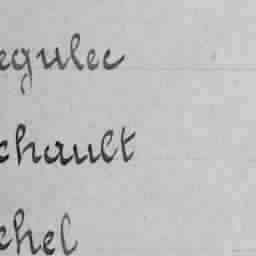 egulec
chault
chel